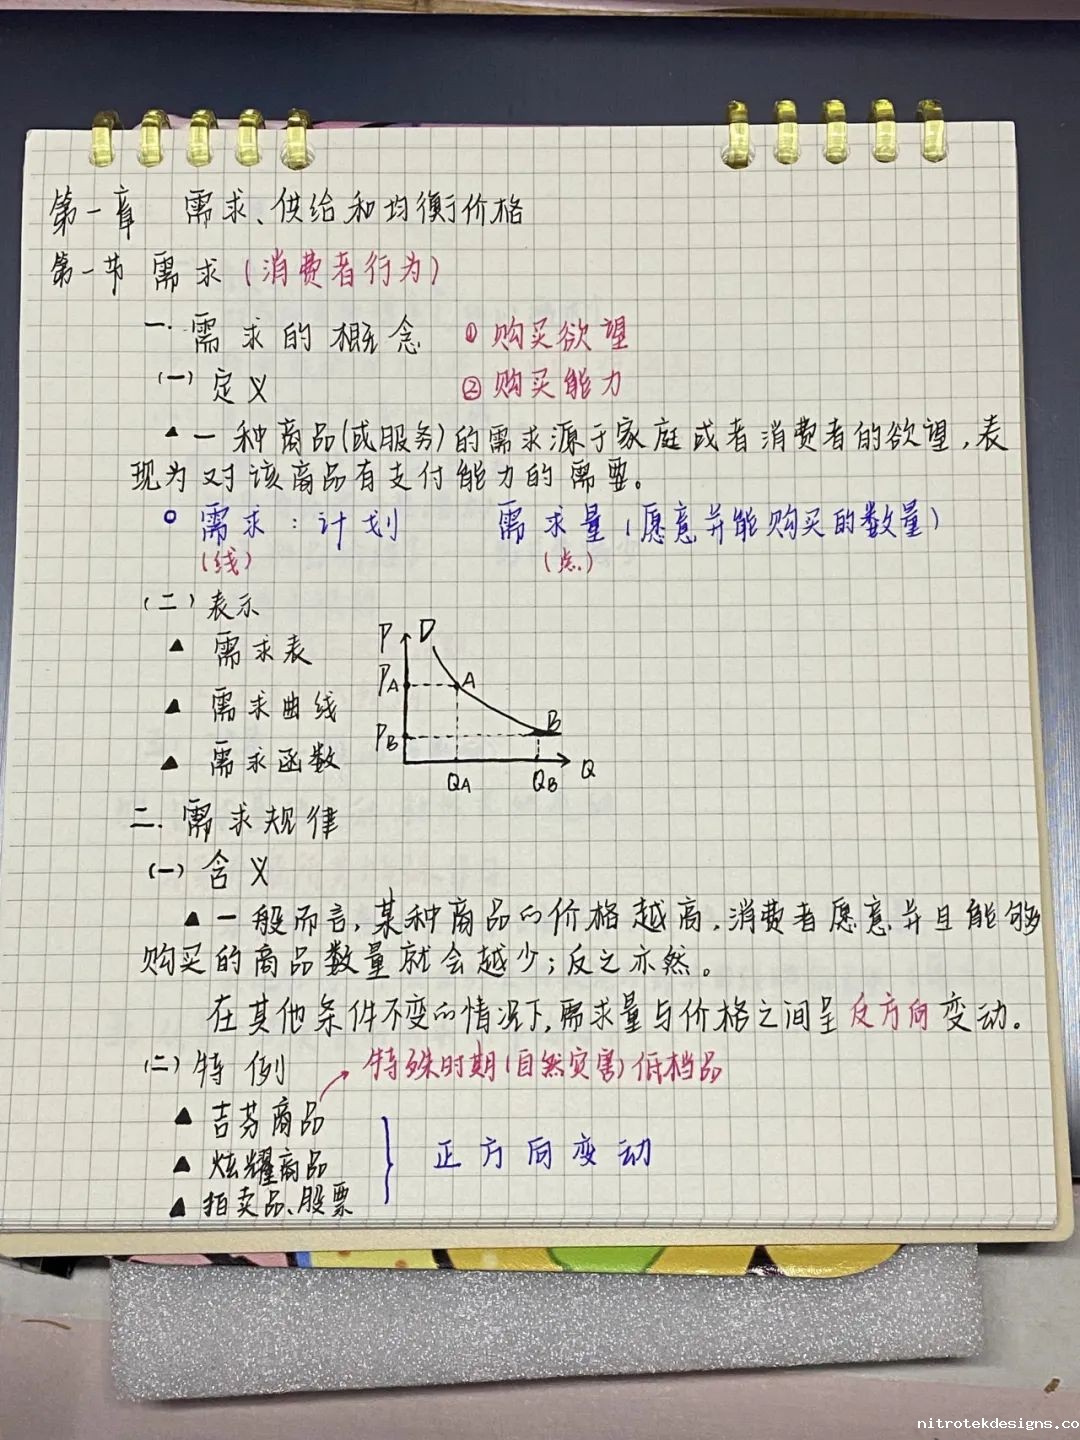 第一章 需求、供给和均衡价格
第一节 需求(消费者行为)
一.需求的概念 ①购买欲望
(一)定义 ②购买能力
▲一种商品(或服务)的需求源于家庭或者消费者的欲望,表
现为对该商品有支付能力的需要。
○ 需求:计划 需求量(愿意并能购买的数量)
(线) (点)
(二)表示
▲ 需求表
▲ 需求曲线
▲ 需求函数
P D
PA A
PB B
QA QB Q
二.需求规律
(一)含义
▲一般而言,某种商品的价格越高,消费者愿意并且能够
购买的商品数量就会越少;反之亦然。
在其他条件不变的情况下,需求量与价格之间呈反方向变动。
(二)特例 特殊时期(自然灾害)低档品
▲ 吉芬商品
▲ 炫耀商品 正方向变动
▲ 拍卖品、股票
nitrotekdesigns.co